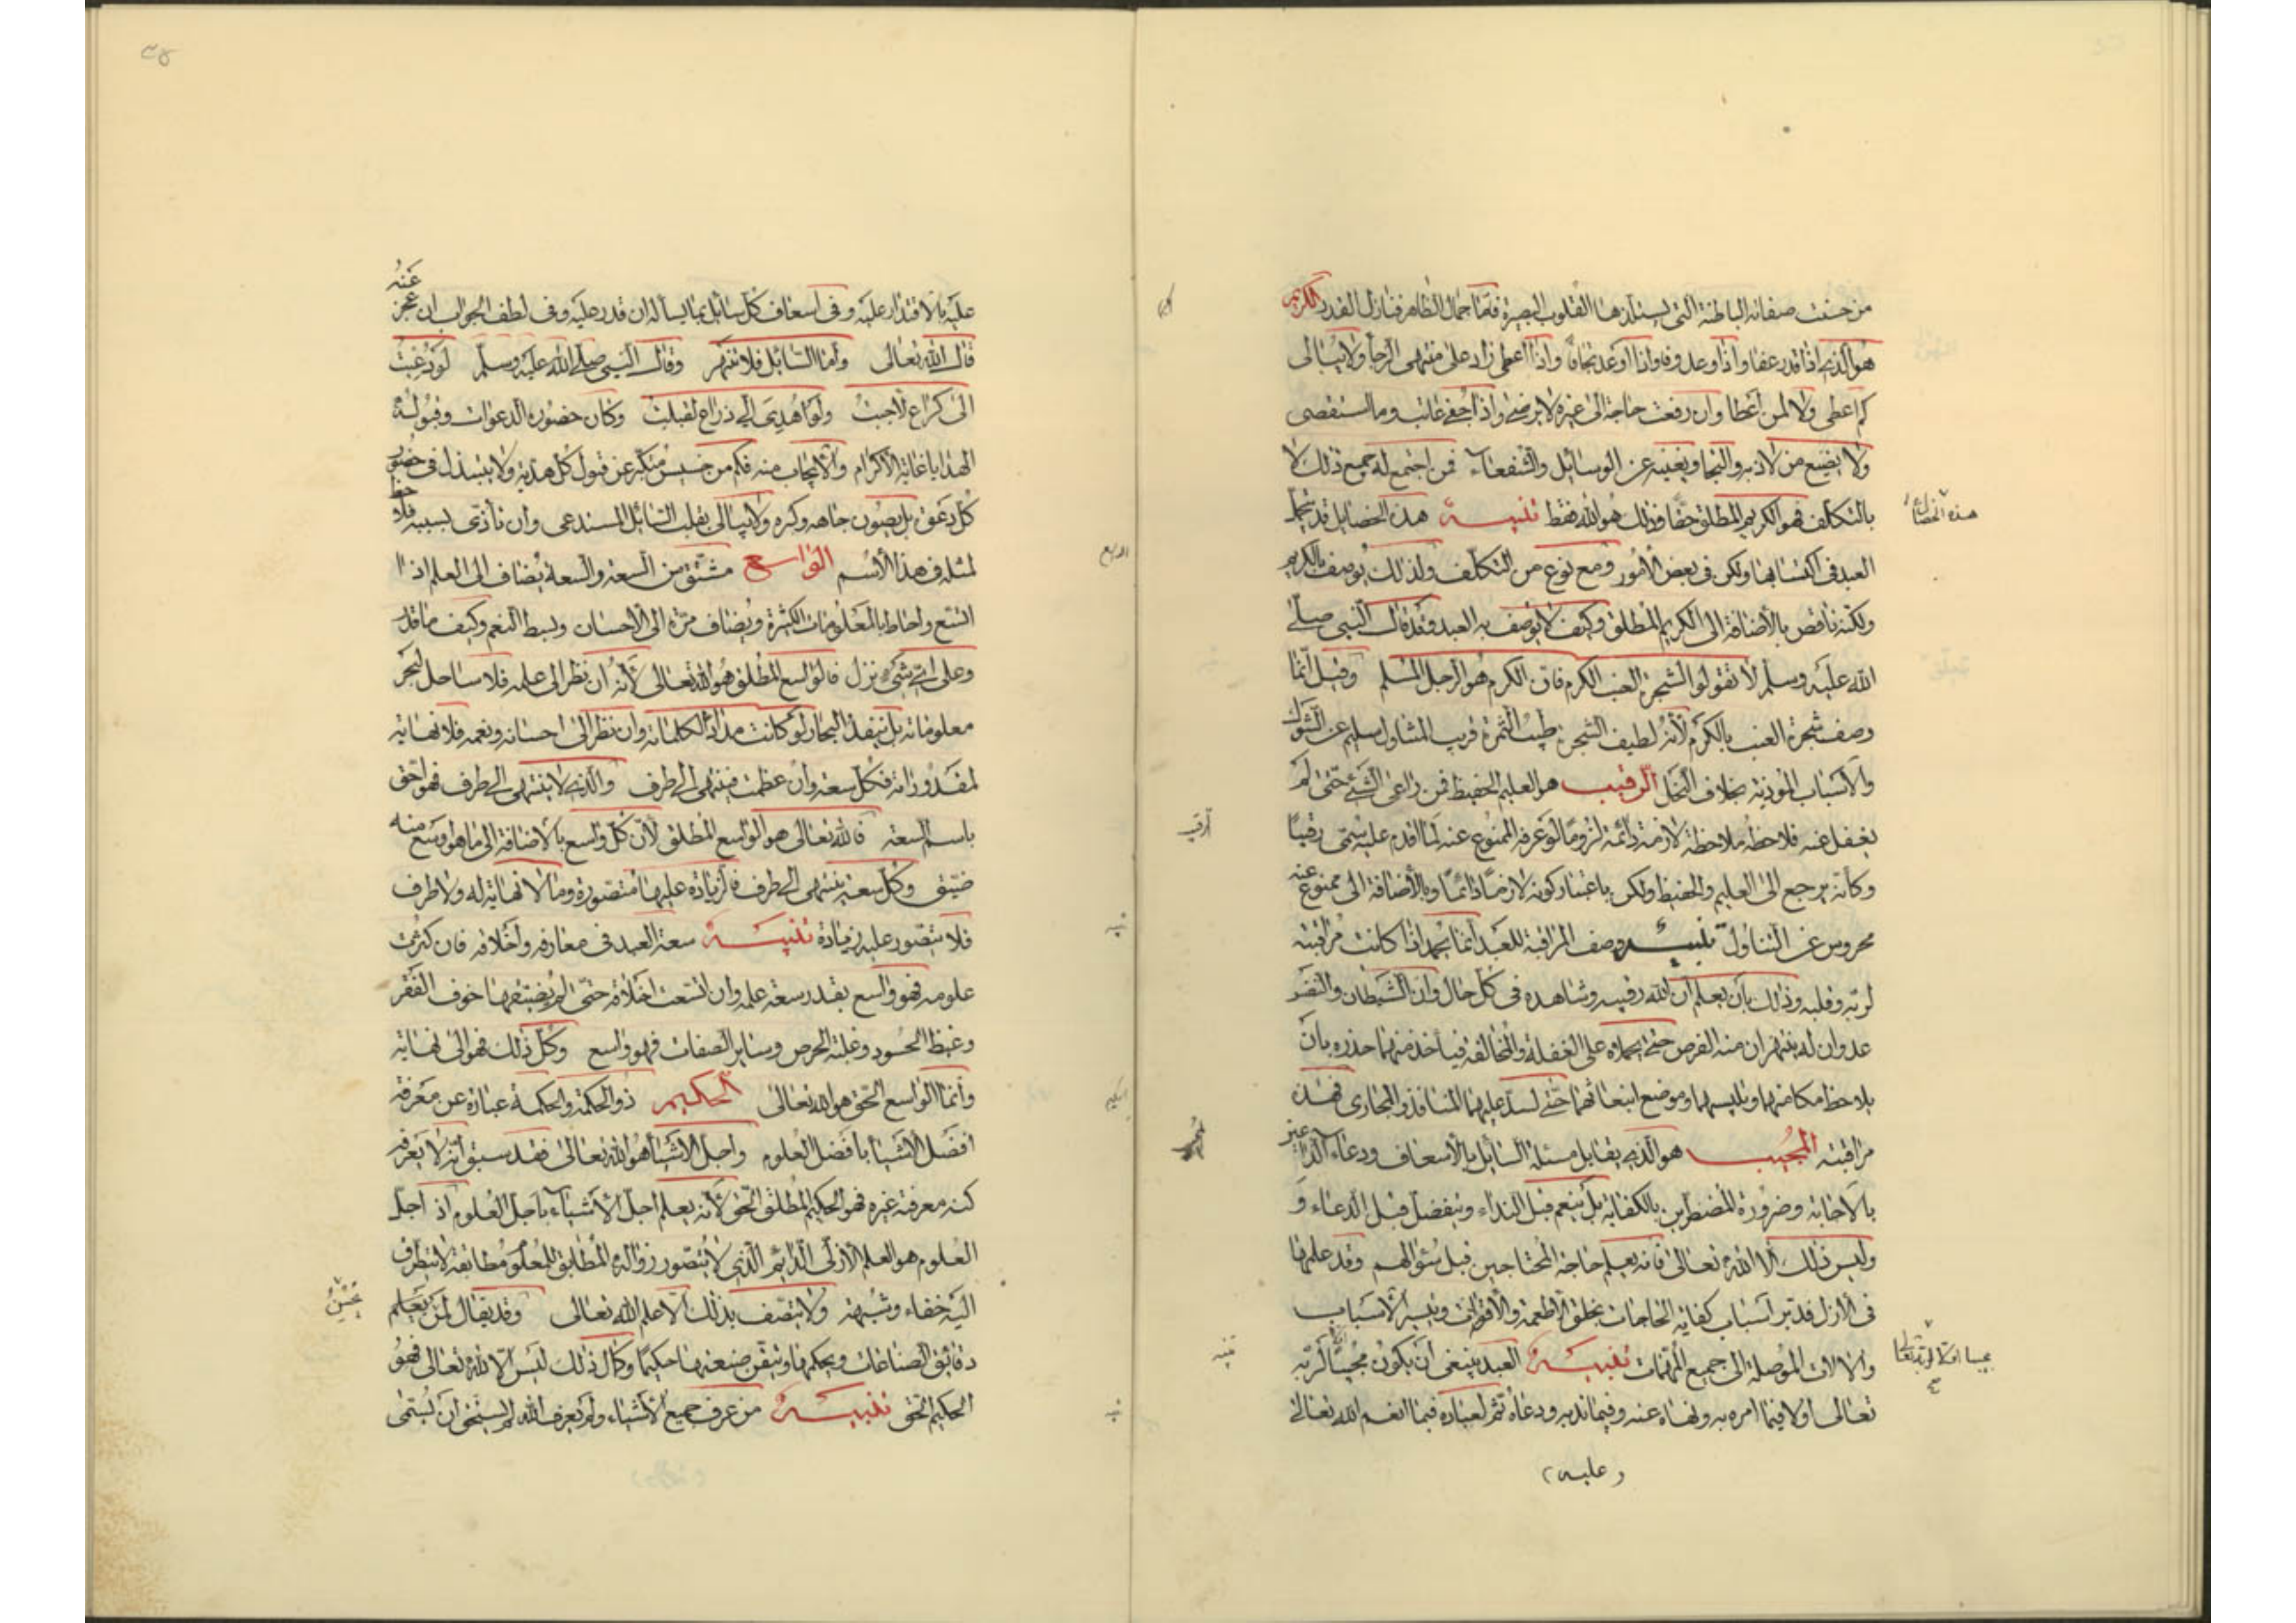 من حسنت صفاته الباطنة التي يستلذها القلوب البصيرة فاما جمال الظاهر فنازل القدر الكريم
هو الذي اذا قدر عفا واذا وعد وفا واذا اوعد تجافا واذا اعطى زاد على منتهى الرجا ولا يبالى
كم اعطى ولا لمن اعطا وان رفعت حاجة الى غيره لا يرضى واذا جفى عاتب وما استقصى
ولا يضيع من لاذ به والتجا ويغنيه عن الوسائل والشفعاء فمن اجتمع له جميع ذلك لا
بالتكلف فهو الكريم المطلق حقا وذلك هو الله فقط تنبيه هذه الخصايل قد يتجمل
العبد فى اكتسابها ولكن فى بعض الأمور ومع نوع من التكلف ولذلك يوصف بالكريم
ولكنه ناقص بالأضافة الى الكريم المطلق وكيف لا يوصف به العبد وقد قال النبي صلى
الله عليه وسلم لا تقولوا لشجرة العنب الكرم فان الكرم هو الرجل المسلم وقيل انما
وصف شجرة العنب بالكرم لأنه لطيف الشجرة طيب الثمرة قريب المتناول سليم عن الشوك
والأسباب المؤذية بخلاف النخل الرقيب هو العليم الحفيظ فمن راعى الشئ حتى لم
يغفل عنه فلاحظه ملاحظة لازمة دائمة لزوما لو عرفه الممنوع عنه لما اقدم عليه سمى رقيبا
وكأنه يرجع الى العليم والحفيظ ولكن باعتبار كونه لازما دائما وبالأضافة الى ممنوع عنه
محروس عن التناول تنبيه وصف المراقبة للعبد انما يحمد اذا كانت مراقبته
لربه وقلبه وذلك بأن يعلم ان الله رقيبه وشاهده فى كل حال وان الشيطان والنفس
عدوان له ينتهزان منه الفرص حتى يحملاه على الغفلة والمخالفة فيأخذ منهما حذره بان
يلاحظ مكامنهما وتلبيسهما وموضع انبعاثهما حتى يسد عليهما المنافذ والمجارى فهذه
مراقبته المجيب هو الذى يقابل مسئلة السائل بالأسعاف ودعاء الداعين
بالاجابة وضرورة المضطرين بالكفاية بل ينعم قبل النداء ويتفضل قبل الدعاء و
وليس ذلك الا الله تعالى فانه يعلم حاجة المحتاجين قبل سؤالهم وقد علمها
فى الأزل فدبر اسباب كفاية الحاجات بخلق الاطعمة والأقوات وتيسير الأسباب
والالات الموصلة الى جميع المهمات تنبيه العبد ينبغى ان يكون مجيبا لربه
تعالى اولا فيما امره به ونهاه عنه وفيما ندبه ودعاه ثم لعباده فيما انعم الله تعالى
(عليه)
هذه الخصال
الرقيب
تنبيه
عنه
عليه بالاقتدار عليه وفى اسعاف كل سائل بما يسأله ان قدر عليه وفى لطف الجواب ان عجز
قال الله تعالى وأما السائل فلا تنهر وقال النبي صلى الله عليه وسلم لو دعيت
الى كراع لاجبت ولو اهدي الي ذراع لقبلت وكان حضوره الدعوات وقبوله
الهدايا غاية الأكرام والأيجاب منه فكم من خسيس متكبر عن قبول كل هدية ولا يتبذل فى حضور
كل دعوة بل يصون جاهه وكبره ولا يبالى بقلب السائل المستدعى وان تأذى بسببه فلا حظ
لمثله فى هذا الأسم الواسع مشتق من السعة والسعة يضاف الى العلم اذا
اتسع واحاط بالمعلومات الكثيرة ويضاف مرة الى الأحسان وبسط النعم وكيف ما قدر
وعلى اي شىء نزل فالواسع المطلق هو الله تعالى لأنه ان نظر الى علمه فلا ساحل لبحر
معلوماته بل ينفد البحار لو كانت مدادا لكلماته وان نظر الى احسانه ونعمه فلا نهاية
لمقدوراته فكل سعة وان عظمت فينتهى الى طرف والذي لا ينتهى الى طرف فهو احق
باسم السعة فالله تعالى هو الواسع المطلق لأن كل واسع بالاضافة الى ما هو اوسع منه
ضيق وكل سعة ينتهى الى طرف فالزيادة عليها متصورة وما لا نهاية له ولا طرف
فلا يتصور عليه زيادة تنبيه سعة العبد فى معارفه واخلاقه فان كثرت
علومه فهو واسع بقدر سعة علمه وان اتسعت اخلاقه حتى لم يضيقها خوف الفقر
وغيظ الحسود وغلبة الحرص وساير الصفات فهو واسع وكل ذلك فهو الى نهاية
وانما الواسع الحق هو الله تعالى الحكيم ذو الحكمة والحكمة عبارة عن معرفة
افضل الأشيا بافضل العلوم واجل الأشيا هو الله تعالى فقد سبق انه لا يعرف
كنه معرفته غيره فهو الحكيم المطلق الحق لأنه يعلم اجل الأشياء باجل العلوم اذ اجل
العلوم هو العلم الأزلى الدائم الذي لا يتصور زواله المطابق للمعلوم مطابقة لا يتطرف
اليه خفاء وشبهة ولا يتصف بذلك الا علم الله تعالى وقد يقال لمن يعلم
دقائق الصناعات ويحكمها ويتقن صنعتها حكيما وكمال ذلك ليس الا لله تعالى فهو
الحكيم الحق تنبيه من عرف جميع الأشياء ولم يعرف الله لم يستحق ان يسمى